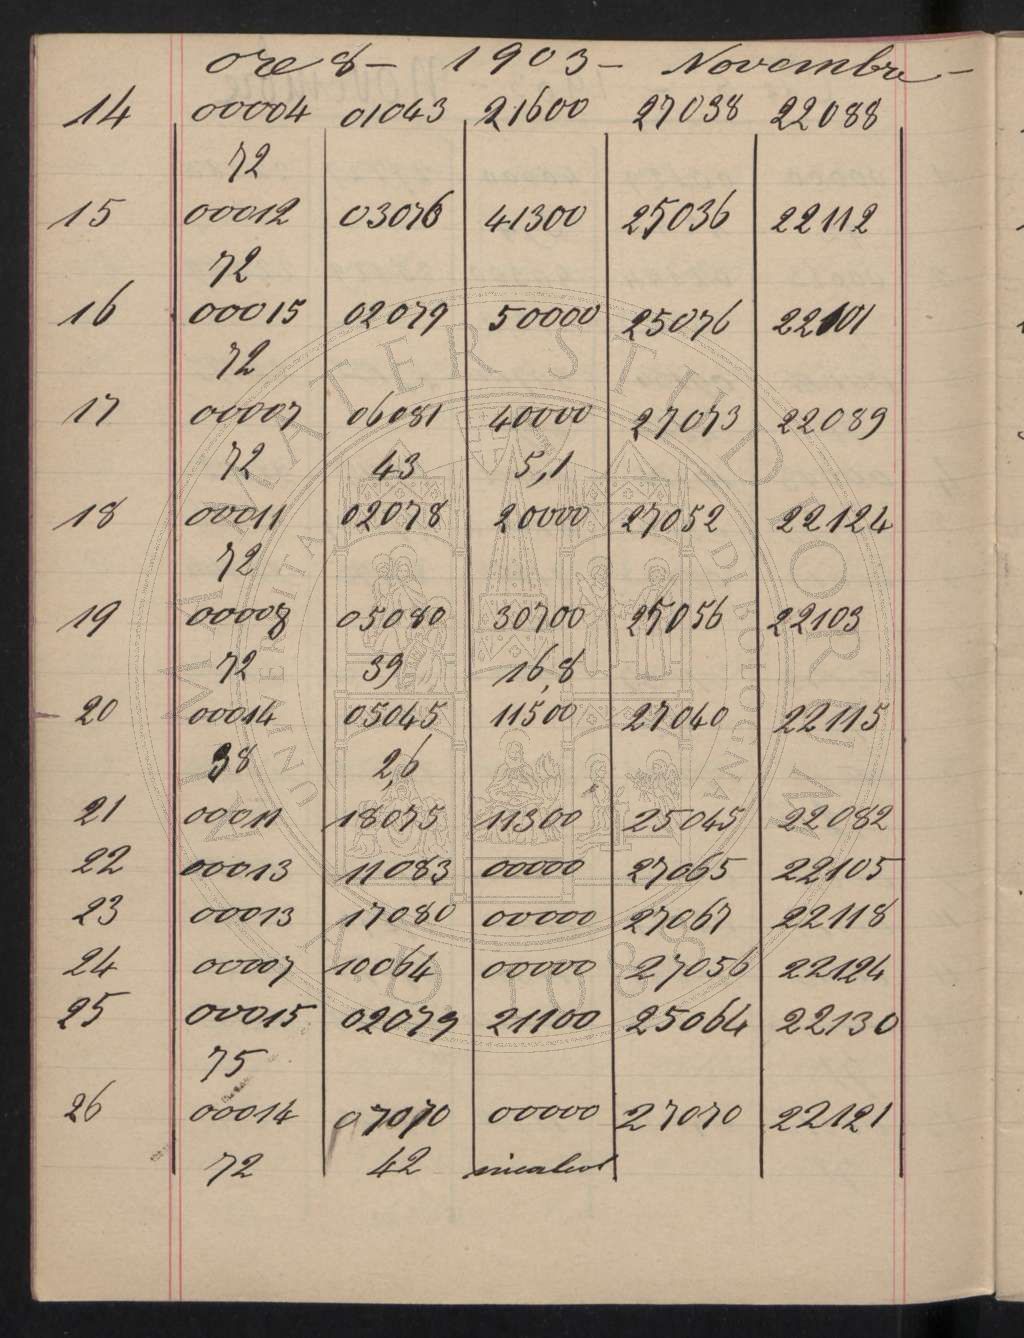 ore 8 - 1903 - Novembre -
14 00004 01043 21600 27038 22088
72
15 00012 03076 41300 25036 22112
72
16 00015 02079 50000 25076 22101
72
17 00007 06081 40000 27073 22089
72 43 5,1
18 00011 02078 20000 27052 22124
72
19 00008 05080 30700 25056 22103
72 39 16,8
20 00014 05045 11500 27040 22115
38 2,6
21 00011 18075 11300 25045 22082
22 00013 11083 00000 27065 22105
23 00013 17080 00000 27067 22118
24 00007 10064 00000 27056 22124
25 00015 02079 21100 25064 22130
75
26 00014 07070 00000 27070 22121
72 42
ALMA MATER STUDIORUM
UNIVERSITÀ DI BOLOGNA
A.D. 1088